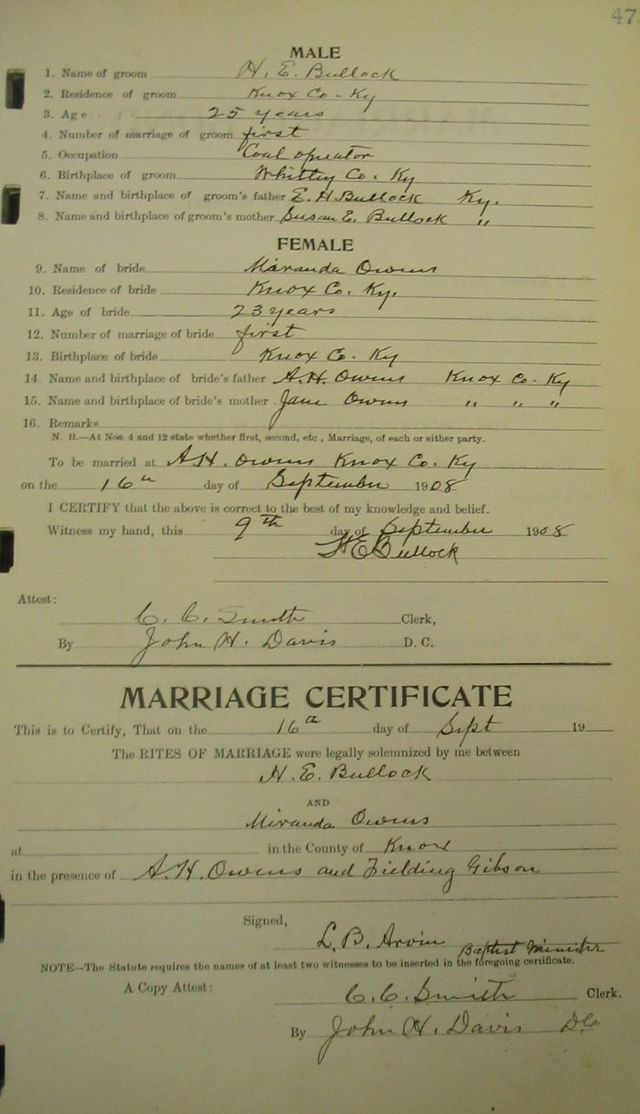 47
MALE
1. Name of groom H. E. Bullock
2. Residence of groom Knox Co. Ky
3. Age 25 years
4. Number of marriage of groom first
5. Occupation Coal operator
6. Birthplace of groom Whitley Co. Ky
7. Name and birthplace of groom's father E. H. Bullock Ky.
8. Name and birthplace of groom's mother Susan E. Bullock "
FEMALE
9. Name of bride Miranda Owens
10. Residence of bride Knox Co. Ky.
11. Age of bride 23 years
12. Number of marriage of bride first
13. Birthplace of bride Knox Co. Ky
14. Name and birthplace of bride's father A. H. Owens Knox Co. Ky
15. Name and birthplace of bride's mother Jane Owens " " "
16. Remarks
N. B.—At Nos. 4 and 12 state whether first, second, etc., Marriage, of each or either party.
To be married at A H. Owens Knox Co. Ky
on the 16th day of September 1908
I CERTIFY that the above is correct to the best of my knowledge and belief.
Witness my hand, this 9th day of September 1908
H E Bullock
Attest:
C. C. Smith Clerk,
By John H. Davis D. C.
MARRIAGE CERTIFICATE
This is to Certify, That on the 16th day of Sept 19
The RITES OF MARRIAGE were legally solemnized by me between
H. E. Bullock
AND
Miranda Owens
at in the County of Knox
in the presence of A. H. Owens and Fielding Gibson
Signed,
L. B. Arvin Baptist Minister
NOTE—The Statute requires the names of at least two witnesses to be inserted in the foregoing certificate.
A Copy Attest: C. C. Smith Clerk.
By John H. Davis DC